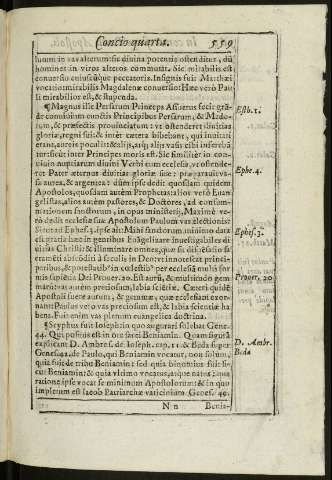 Concio quarta. 559
luum in vas alterum: sic diuina potentia ostenditur, dũ
homines in viros alteros commutat. Sic mirabilis est
conuersio cuiuscũque peccatoris. Insignis fuit Matthæi
vocatio: mirabilis Magdalenæ conuersio: Hæc verò Pau
li mirabilior est, & stupenda.
¶Magnus ille Persarum Princeps Assuerus fecit grã-
de conuiuium cunctis Principibus Persarum, & Medo-
rum, & præfectis prouinciarum: vt ostenderet diuitias
gloriæ, regni sui: & inter cætera bibebant, qui inuitati
erant, aureis poculis: & alijs, atq; alijs vasis cibi inferebã
tur: sicut inter Principes moris est. Sic similiter in con-
uiuio nuptiarum diuini Verbi cum ecclesia, vt ostende-
ret Pater æternus diuitias gloriæ suæ: præparauit va-
sa aurea, & argentea: dum ipse dedit quosdam quidem
Apostolos, quosdam autem Prophetas, alios verò Euan
gelistas, alios autem pastores, & Doctores, ad consum-
mationem sanctorum, in opus ministerij. Maximè ve-
rò dedit ecclesiæ suæ Apostolum Paulum vas electionis:
Sicut ad Ephes. 3. ipse ait: Mihi sanctorum minimo data
est gratia hæc in gentibus Euãgelizare inuestigabiles di
uitias Christi: & illuminare omnes, quæ sit dispensatio sa
cramẽti absconditi à sæculis in Deo: vt innotescat princi-
patibus, & potestatibꝰ in cœlestibꝰ per ecclesiã multifor
mis sapiẽtia Dei
Prouer. 20. Est aurũ, & multitudo gem-
marũ: vas autem preciosum, labia scientiæ. Cæteri quidẽ
Apostoli fuere aurum, & gemmæ, quæ ecclesiam exor-
nant: Paulus verò vas preciosum est, & labia scientiæ ha
bens. Fuit enim vas plenum euangelica doctrina.
¶Scyphus fuit Iosephi: in quo augurari solebat Gene.
44. Qui positus est in ore sacci Beniamin. Quam figurã
explicant D. Ambros. de Ioseph. cap. 11. & Beda super
Genes. 44. de Paulo, qui Beniamin vocatur, non solum,
quia fuit de tribu Beniamin: sed quia binomius fuit si-
cut Beniamin: & quia vltimo vocatus, atque natus: qua
ratione ipse vocat se minimum Apostolorum: & in quo
impletum est Iacob Patriarchæ vaticinium Genes. 49.
N n Benia-
Esth. 1.
Ephe. 4.
Ephes. 3.
Prouer. 20
D. Ambr.
Beda